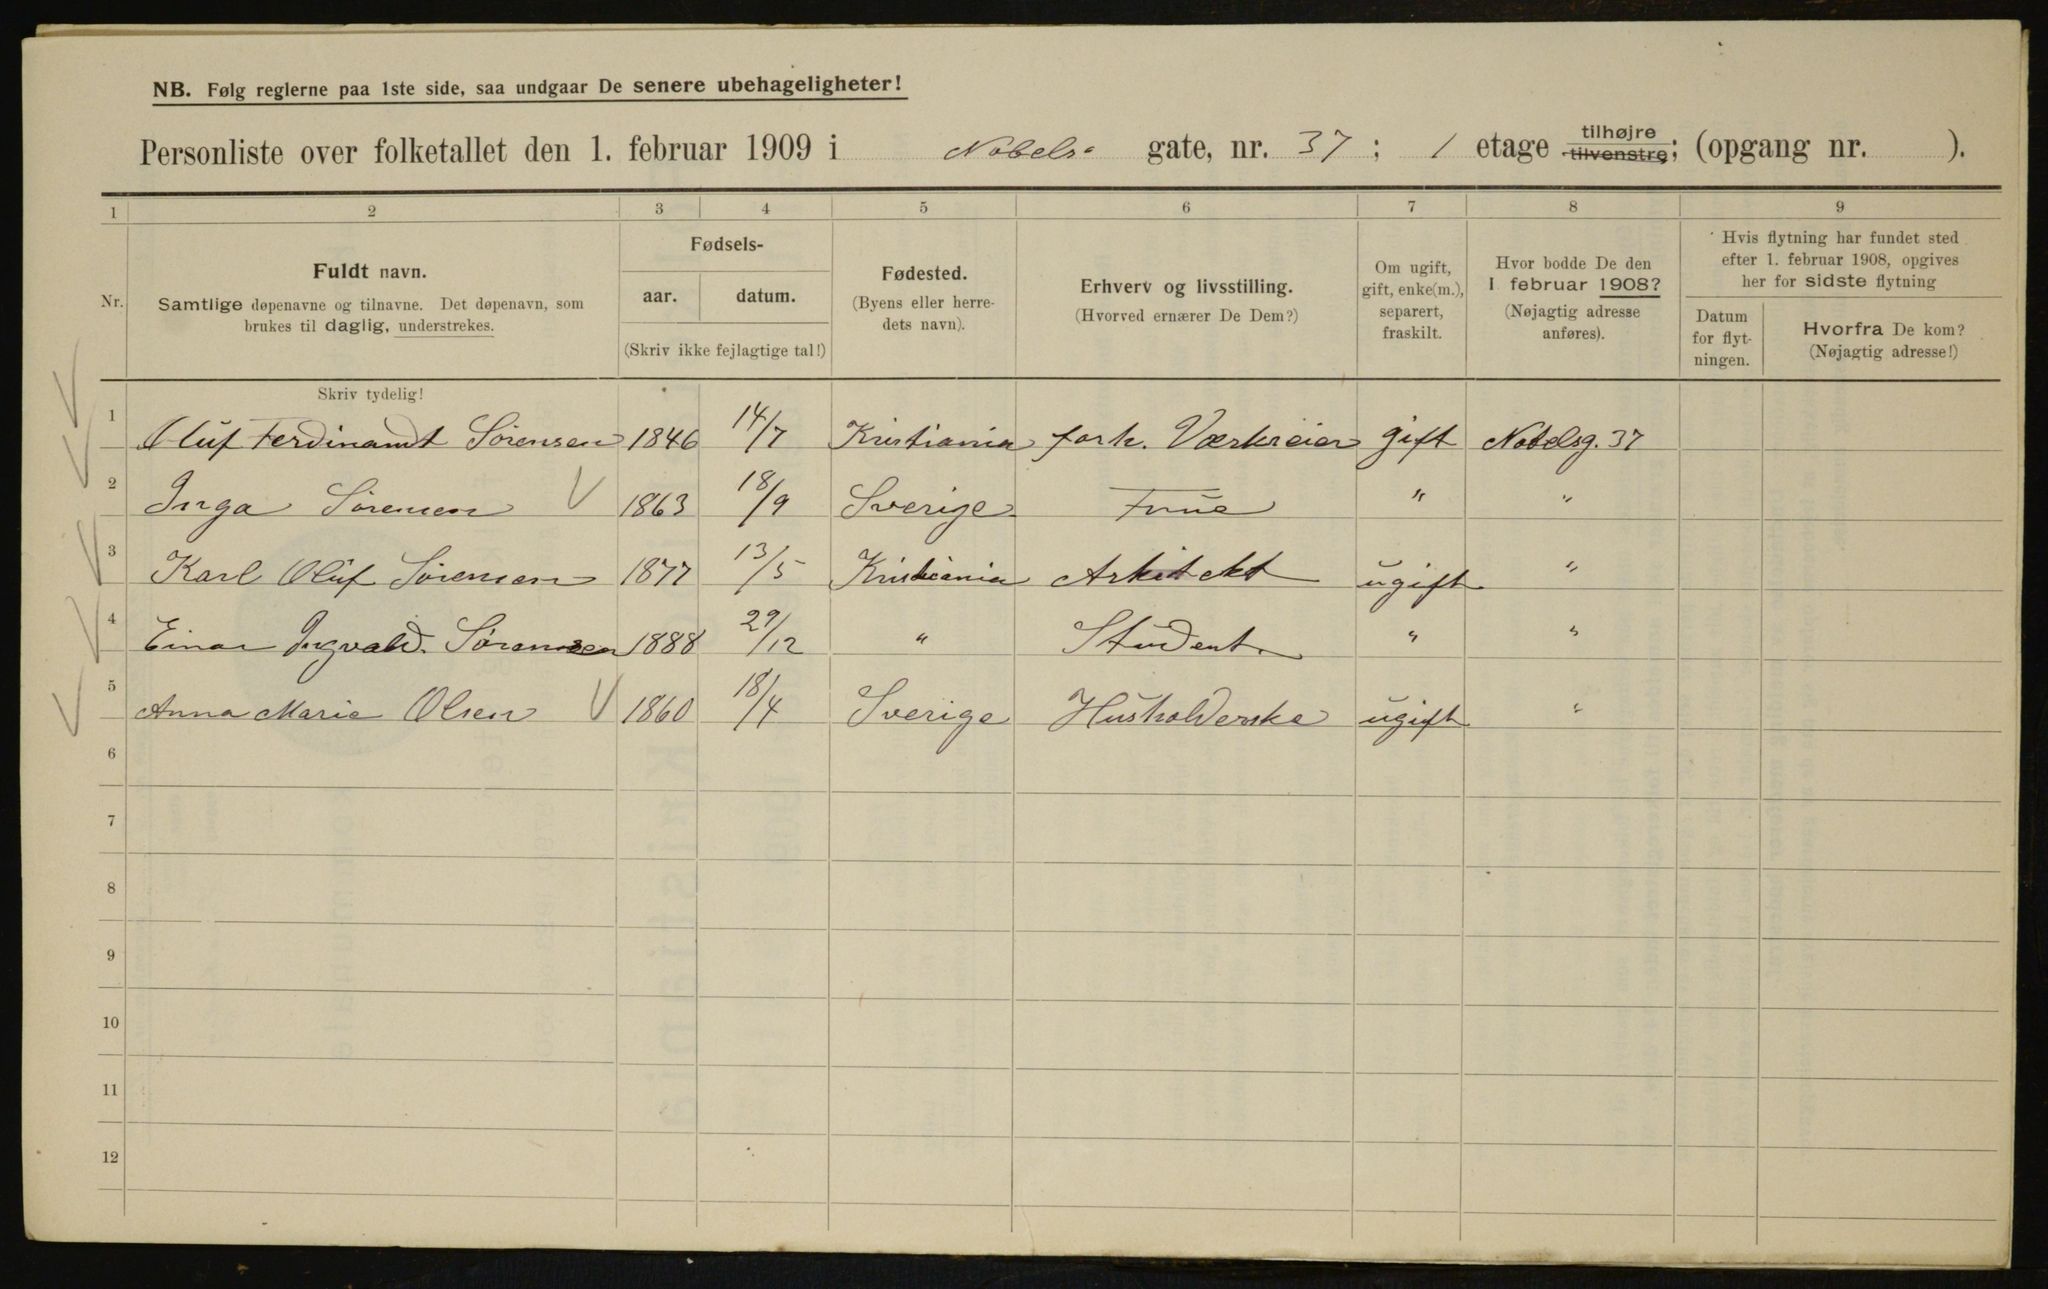 NB. Følg reglerne paa 1ste side, saa undgaar De senere ubehageligheter!
Personliste over folketallet den 1. februar 1909 i Nobels- gate, nr. 37; 1 etage tilhøjre tilvenstre; (opgang nr. ).
1 2 3 4 5 6 7 8 9
Nr.
Fuldt navn.
Samtlige døpenavne og tilnavne. Det døpenavn, som
brukes til daglig, understrekes.
Fødsels-
aar. datum.
(Skriv ikke fejlagtige tal!)
Fødested.
(Byens eller herre-
dets navn).
Erhverv og livsstilling.
(Hvorved ernærer De Dem?)
Om ugift,
gift, enke(m.),
separert,
fraskilt.
Hvor bodde De den
1. februar 1908?
(Nøjagtig adresse
anføres).
Hvis flytning har fundet sted
efter 1. februar 1908, opgives
her for sidste flytning
Datum
for flyt-
ningen.
Hvorfra De kom?
(Nøjagtig adresse!)
Skriv tydelig!
1 Oluf Ferdinamdt Sörensen 1846 14/7 Kristiania forh. Værkseier gift Nobelsg. 37
2 Inga Sörensen 1863 18/9 Sverige Frue " "
3 Karl Oluf Sörensen 1877 13/5 Kristiania Arkitekt ugift "
4 Einar Ingvald. Sörensen 1888 29/12 " Student " "
5 Anna Marie Olsen 1860 18/4 Sverige Husholderske ugift "
6
7
8
9
10
11
12